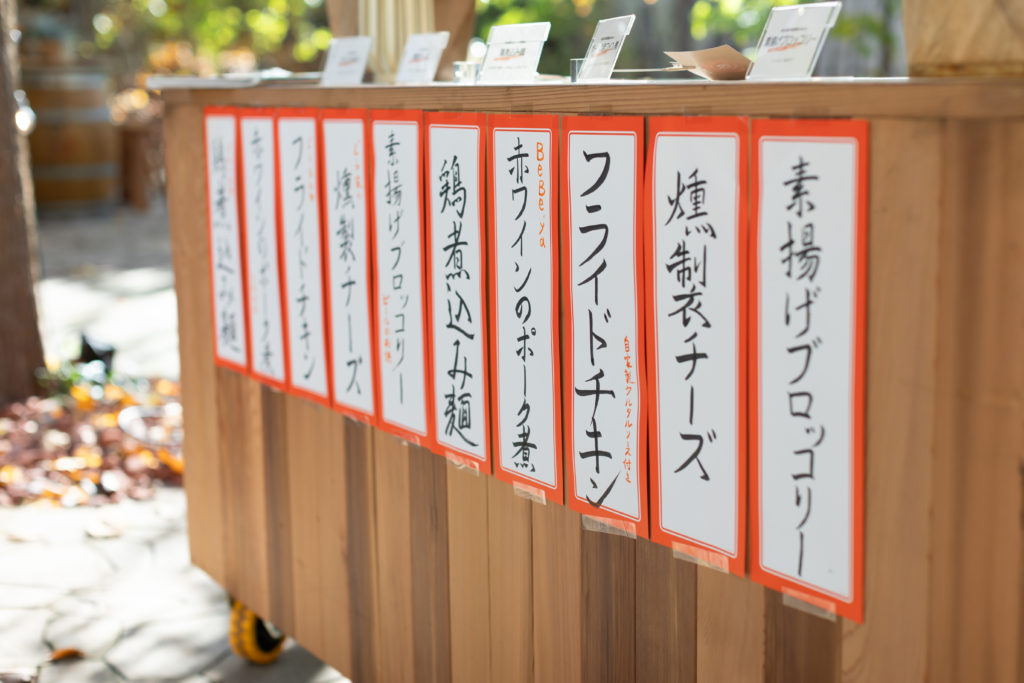 素揚げブロッコリー
燻製チーズ
フライドチキン
自家製タルタルソース付き
BeBe.ya
赤ワインのポーク煮
鶏煮込み麺
素揚げブロッコリー
燻製チーズ
フライドチキン
赤ワインのポーク煮
鶏煮込み麺